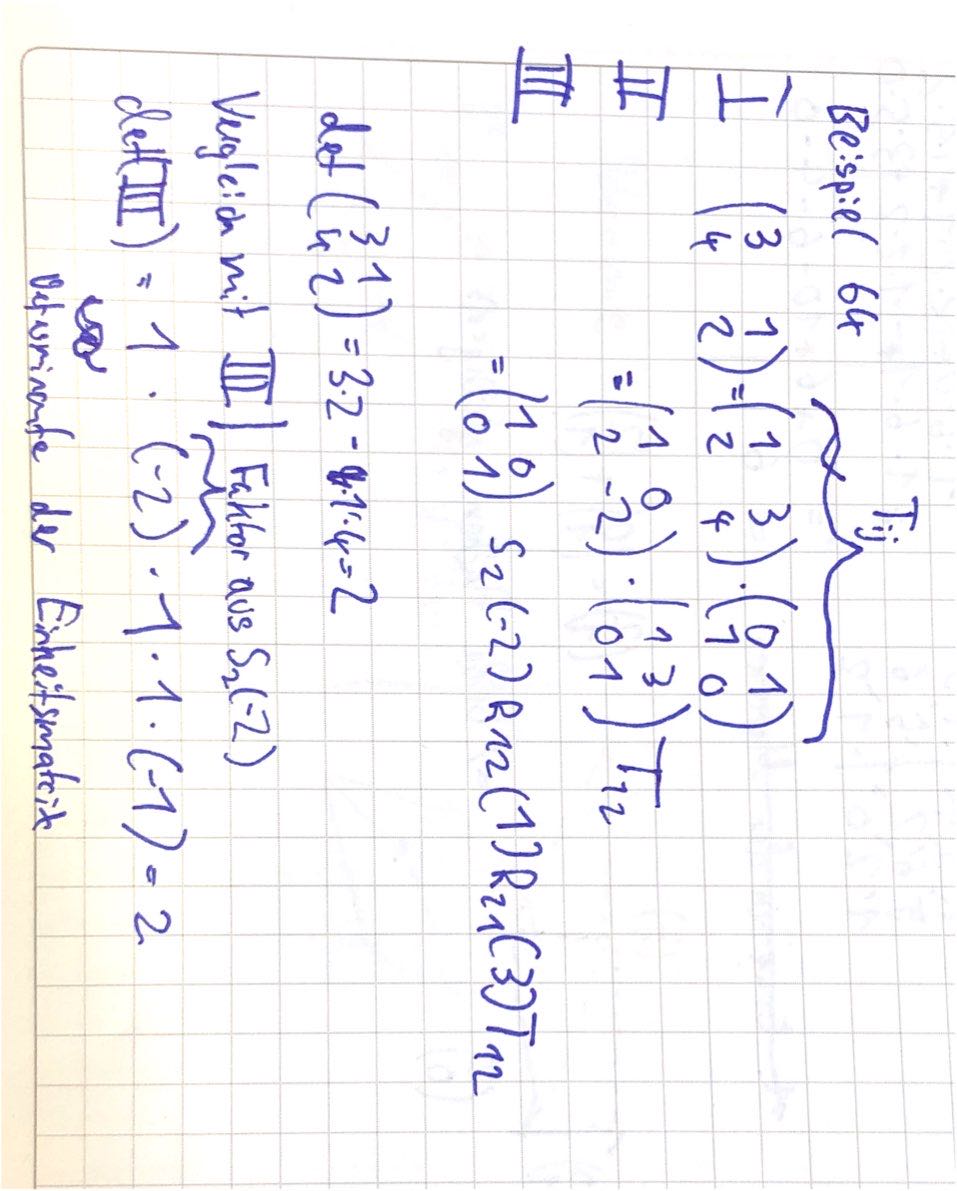 Tij
Beispiel 64
I (3 1 4 2) = (1 3 2 4) · (0 1 1 0)
II = (1 0 2 -2) · (1 3 0 1) T12
III = (1 0 0 1) S2(-2) R12(1) R21(3) T12
det (3 1 4 2) = 3·2 - 1·4 = 2
Vergleich mit III | Faktor aus S2(-2)
det(III) = 1 · (-2) · 1 · 1 · (-1) = 2
Determinante der Einheitsmatrix